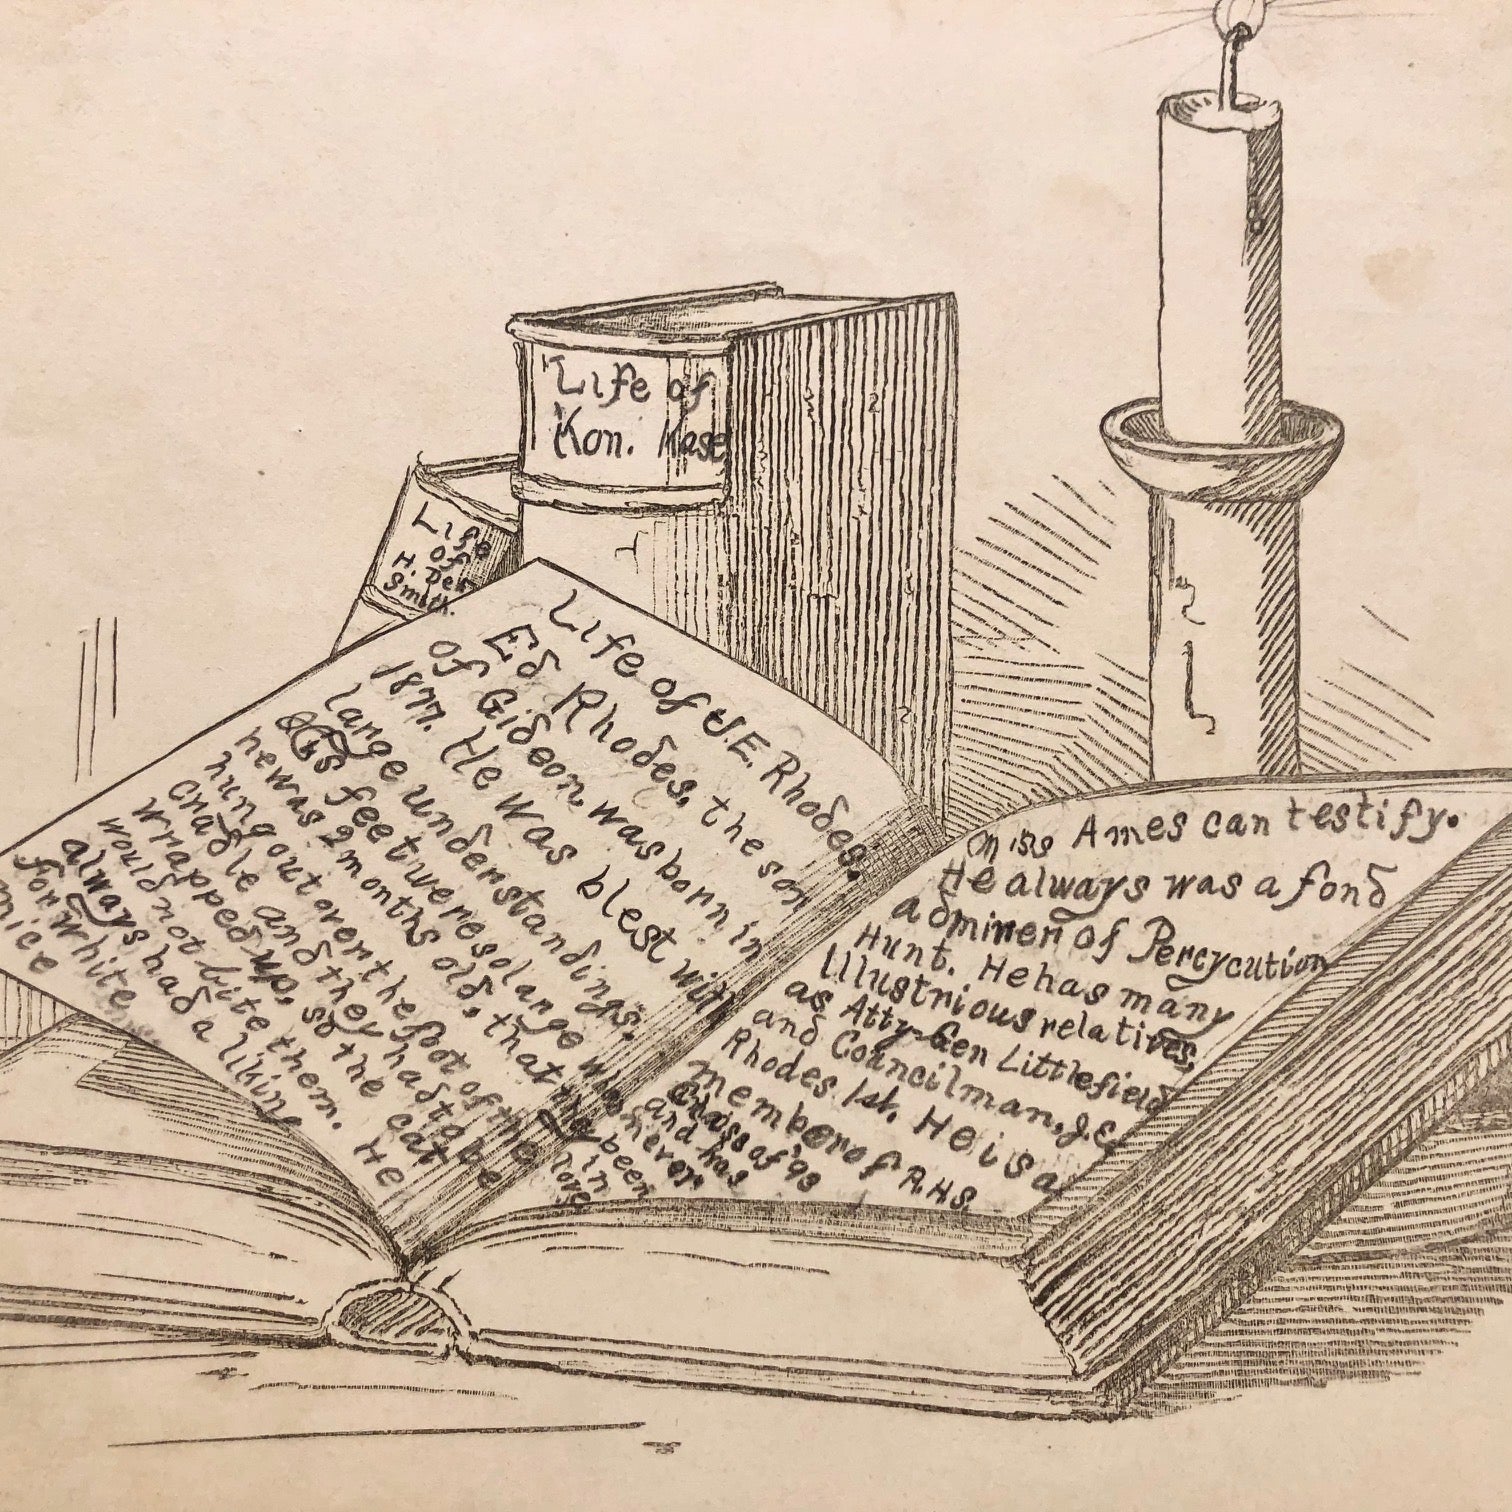 Life of
Kon. Kase
Life
of
H. Def
Smith.
Life of J.E. Rhodes.
Ed Rhodes, the son
of Gideon, was born in
1877. He was blest with
large understandings.
His feet were so large when
he was 2 months old, that they
hung out over the foot of the
cradle and they had to be
wrapped up, so the cat
would not bite them. He
always had a liking
for white
mice
been in
love
and has
Miss Ames can testify.
He always was a fond
admirer of Percycution
Hunt. He has many
Illustrious relatives,
as Atty-Gen Littlefield
and Councilman, J.C.
Rhodes 1st. He is a
member of R.H.S.
Class of '93
and has